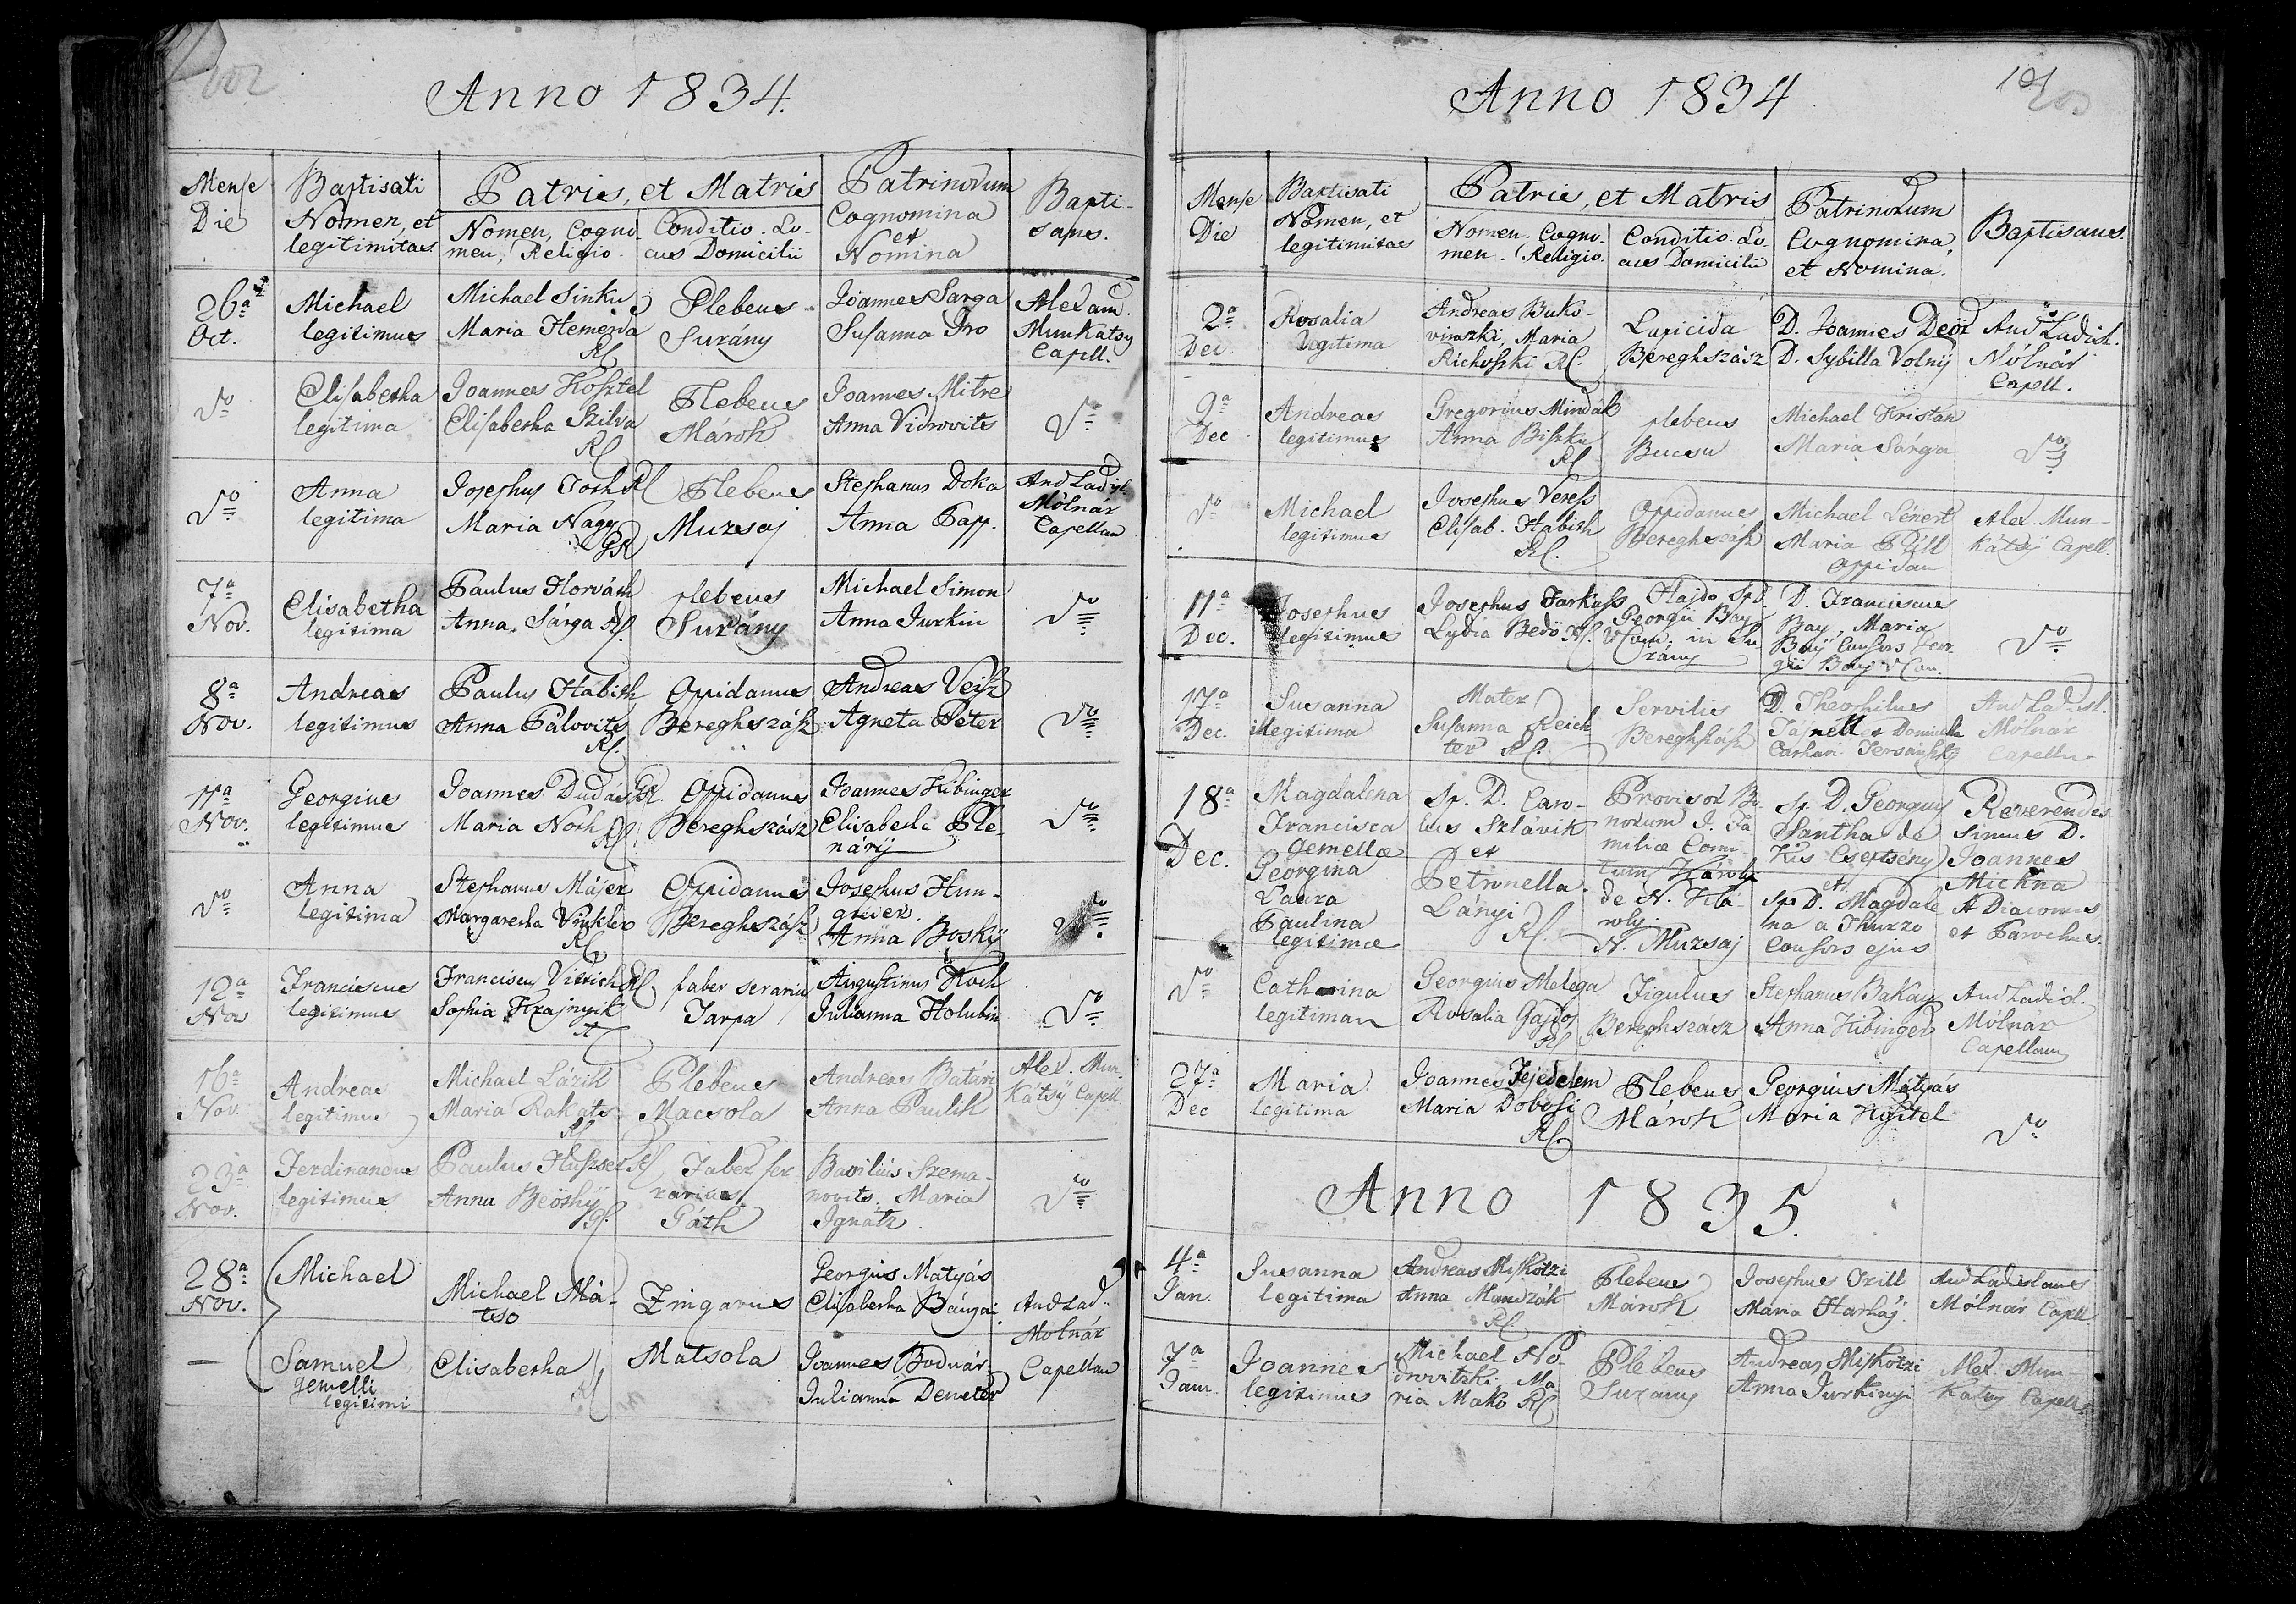 202
Anno 1834.
Mense Die
Baptisati Nomen, et legitimitas
Patris, et Matris
Nomen, Cogno-
men, Religio.
Conditio. Lo-
cus Domicilii
Patrinorum Cognomina et Nomina
Bapti-
sans.
26a Oct.
Michael legitimus
Michael Sinku
Maria Hemerda RC
Plebeus Surány
Joannes Sarga
Susanna Iro
Alexand. Munkatsy Capell.
Do
Elisabetha legitima
Joannes Kosztel
Elisabetha Szilva RC
Plebeus Márok
Joannes Mitre
Anna Vidrovits
Do
Do
Anna legitima
Josephus Toth RC
Maria Nagy GR
Plebeus Muzsaj
Stephanus Doka
Anna Papp.
And Ladisl. Mólnár Capellan
7a Nov.
Elisabetha legitima
Paulus Horváth
Anna Sárga RC.
plebeus Surány
Michael Simon
Anna Jurkin
Do
8a Nov.
Andreas legitimus
Paulus Habith
Anna Pálovits RC.
Oppidanus Bereghszász
Andreas Veisz
Agneta Péter
Do
11a Nov.
Georgius legitimus
Joannes Dudás GR.
Maria Noth RC
Oppidanus Bereghszász
Joannes Kibinger
Elisabetha Ple-
nárÿ
Do
Do
Anna legitima
Stephanus Májer
Margaretha Vinkler RC
Oppidanus Bereghszász
Josephus Hun-
grider.
Anna Boskÿ
Do
12a Nov
Franciscus legitimus
Franciscus Vittich RC
Sophia Krajnyik
faber serarius Tarpa
Augustinus Hoch
Julianna Holubin
Do
16a Nov.
Andreas legitimus
Michael Lázik
Maria Rakats RC
Plebeus Macsola
Andreas Batári
Anna Paulik
Alex. Mun-
kátsÿ Capell.
23a Nov.
Ferdinandus legitimus
Paulus Huszser RC
Anna Beöthÿ
Faber fer-
rarius Gáth
Basilius Szema-
novits. Maria Ignátz
Do
28a Nov.
Michael
Michael Má-
tso
Zingarus
Georgius Matyás
Elisabetha Bányai
And Lad.
Molnár
Capellan
Samuel gemelli legitimi
Elisabetha RC
Matsola
Joannes Bodnár
Julianna Demeter
101
203
Anno 1834
Mense Die
Baptisati Nomen, et legitimitas
Patris, et Matris
Nomen. Cogno-
men. Religio.
Conditio. Lo-
cus Domicilii
Patrinorum Cognomina, et Nomina.
Baptisans.
2a Dec.
Rosalia legitima
Andreas Buko-
vinszki, Maria
Richofski RC.
Lapicida Bereghszász
D. Joannes Deör
D. Sybilla Volnÿ
And Ladisl. Mólnár Capell.
9a Dec
Andreas legitimus
Gregorius Mindák
Anna Biszku RC
plebeus Bucsu
Michael Kristan
Maria Sárga
Do
Do
Michael legitimus
Josephus Veress
Elisab. Habith RC.
Oppidanus Bereghszász
Michael Lénert
Maria Páll
oppidan
Alex. Mun-
kátsÿ Capell.
11a Dec.
Josephus legitimus
Josephus Farkass
Lydia Bedö RC.
Hajdo Spd.
Georgii Bay
VCom. in Su-
rány
D. Franciscus
Bay, Maria
Baÿ Consors Geor-
gii Bay V Com.
Do
17a Dec.
Susanna illegitima
Mater
Susanna Reich-
ter RC.
Servilis Bereghszász
D. Theophilus
And Ladisl. Mólnár Capellan
18a Dec.
Magdalena
Francisca
gemellæ
Georgina
Laura
Paulina
legitimæ
Sp. D. Caro-
lus Szlávik
et
Petronella
Lányi
RC.
Provisor Bo-
norum I. Fa-
miliæ Comi-
tum Károlyi
de N. Ká-
roly.
N. Muzsaj
Sp. D. Georgius
Sántha de
Kis Cseptsény
et
Sp. D. Magdale-
na a Thurzo
Consors ejus
Reverendis-
simus D.
Joannes
Michna
A Diaconus
et Parochus.
Do
Catharina legitima
Georgius Melega
Rosalia Gajdos RC
Figulus Bereghszász
Stephanus Bakay
Anna Kibinger
And Ladisl. Mólnár Capellan
27a Dec
Maria legitima
Joannes Fejedelem
Maria Dobosi RC.
Plebeus Márok
Georgius Mátyás
Maria Kositel
Do
Anno 1835.
4a Jan.
Susanna legitima
Andreas Miskoltzi
Anna Mandzák RC.
Plebeus Márok
Josephus Szill
Maria Harhaj
And Ladislaus Mólnár Capell
7a Jan.
Joannes legitimus
Michael No-
drovitzki. Ma-
ria Mako RC
Plebeus Surany
Andreas Miskoltzi
Anna Jurkinyi
Alex. Mun-
katsy Capell.